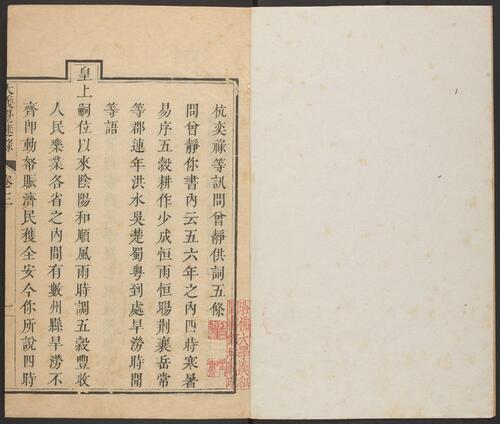 杭奕祿等訊問曾靜供詞五條
問曾靜你書內云五六年之內四時寒暑
易序五穀耕作少成恒雨恒暘荆襄岳常
等郡連年洪水吳楚蜀粵到處旱澇時聞
等語
皇上嗣位以來陰陽和順風雨時調五穀豐收
人民樂業各省之內間有數州縣旱澇不
齊卽動帑賑濟民獲全安今你所說四時
大義覺迷錄
卷三
一